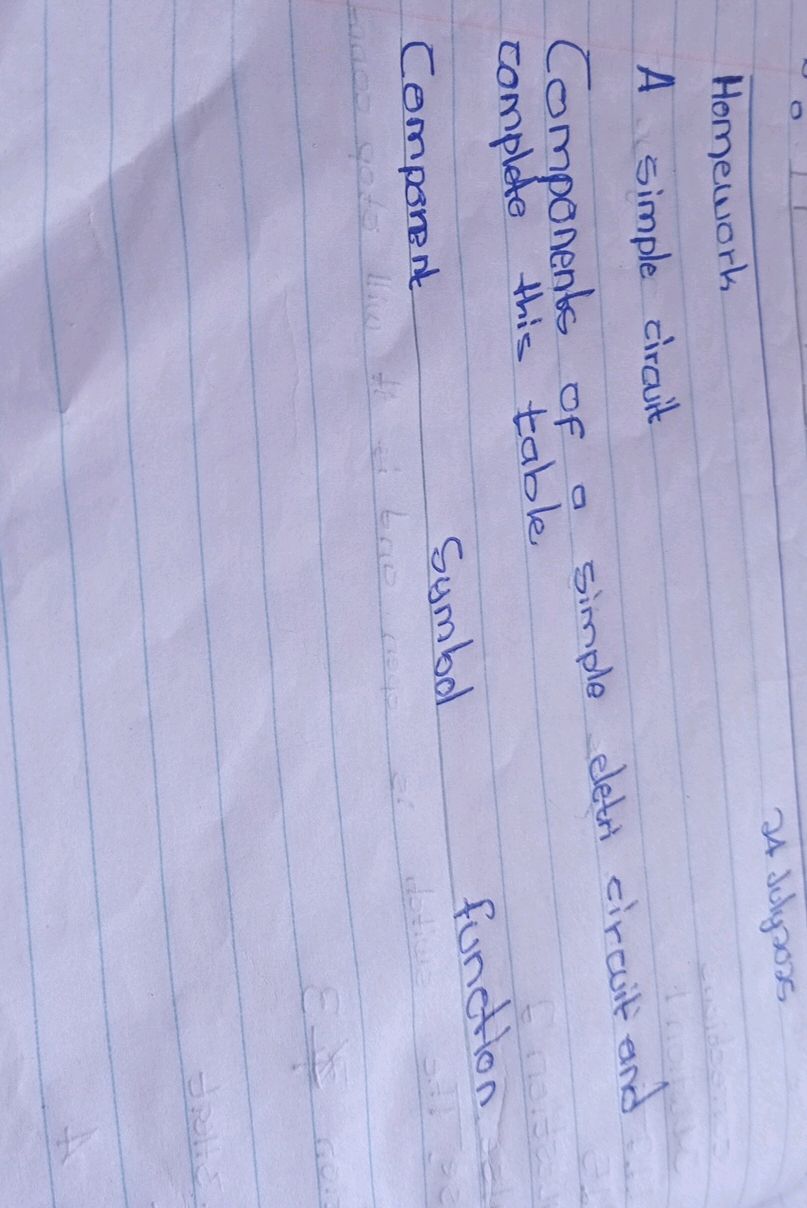 24 July 2025
Homework
A simple circuit
Components of a simple eletri circuit and
complete this table
Component Symbol function